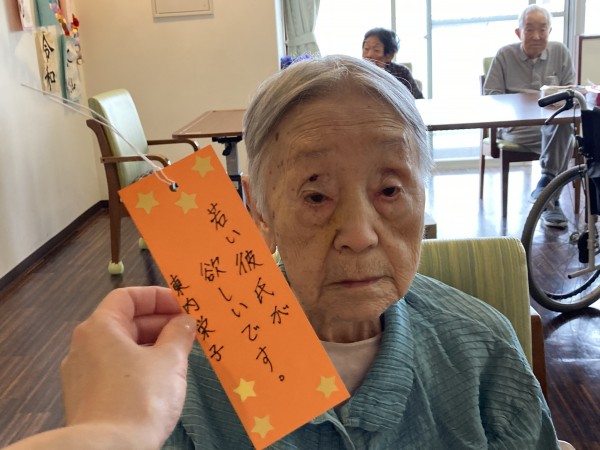 若い彼氏が
欲しいです。
東内栄子
令和